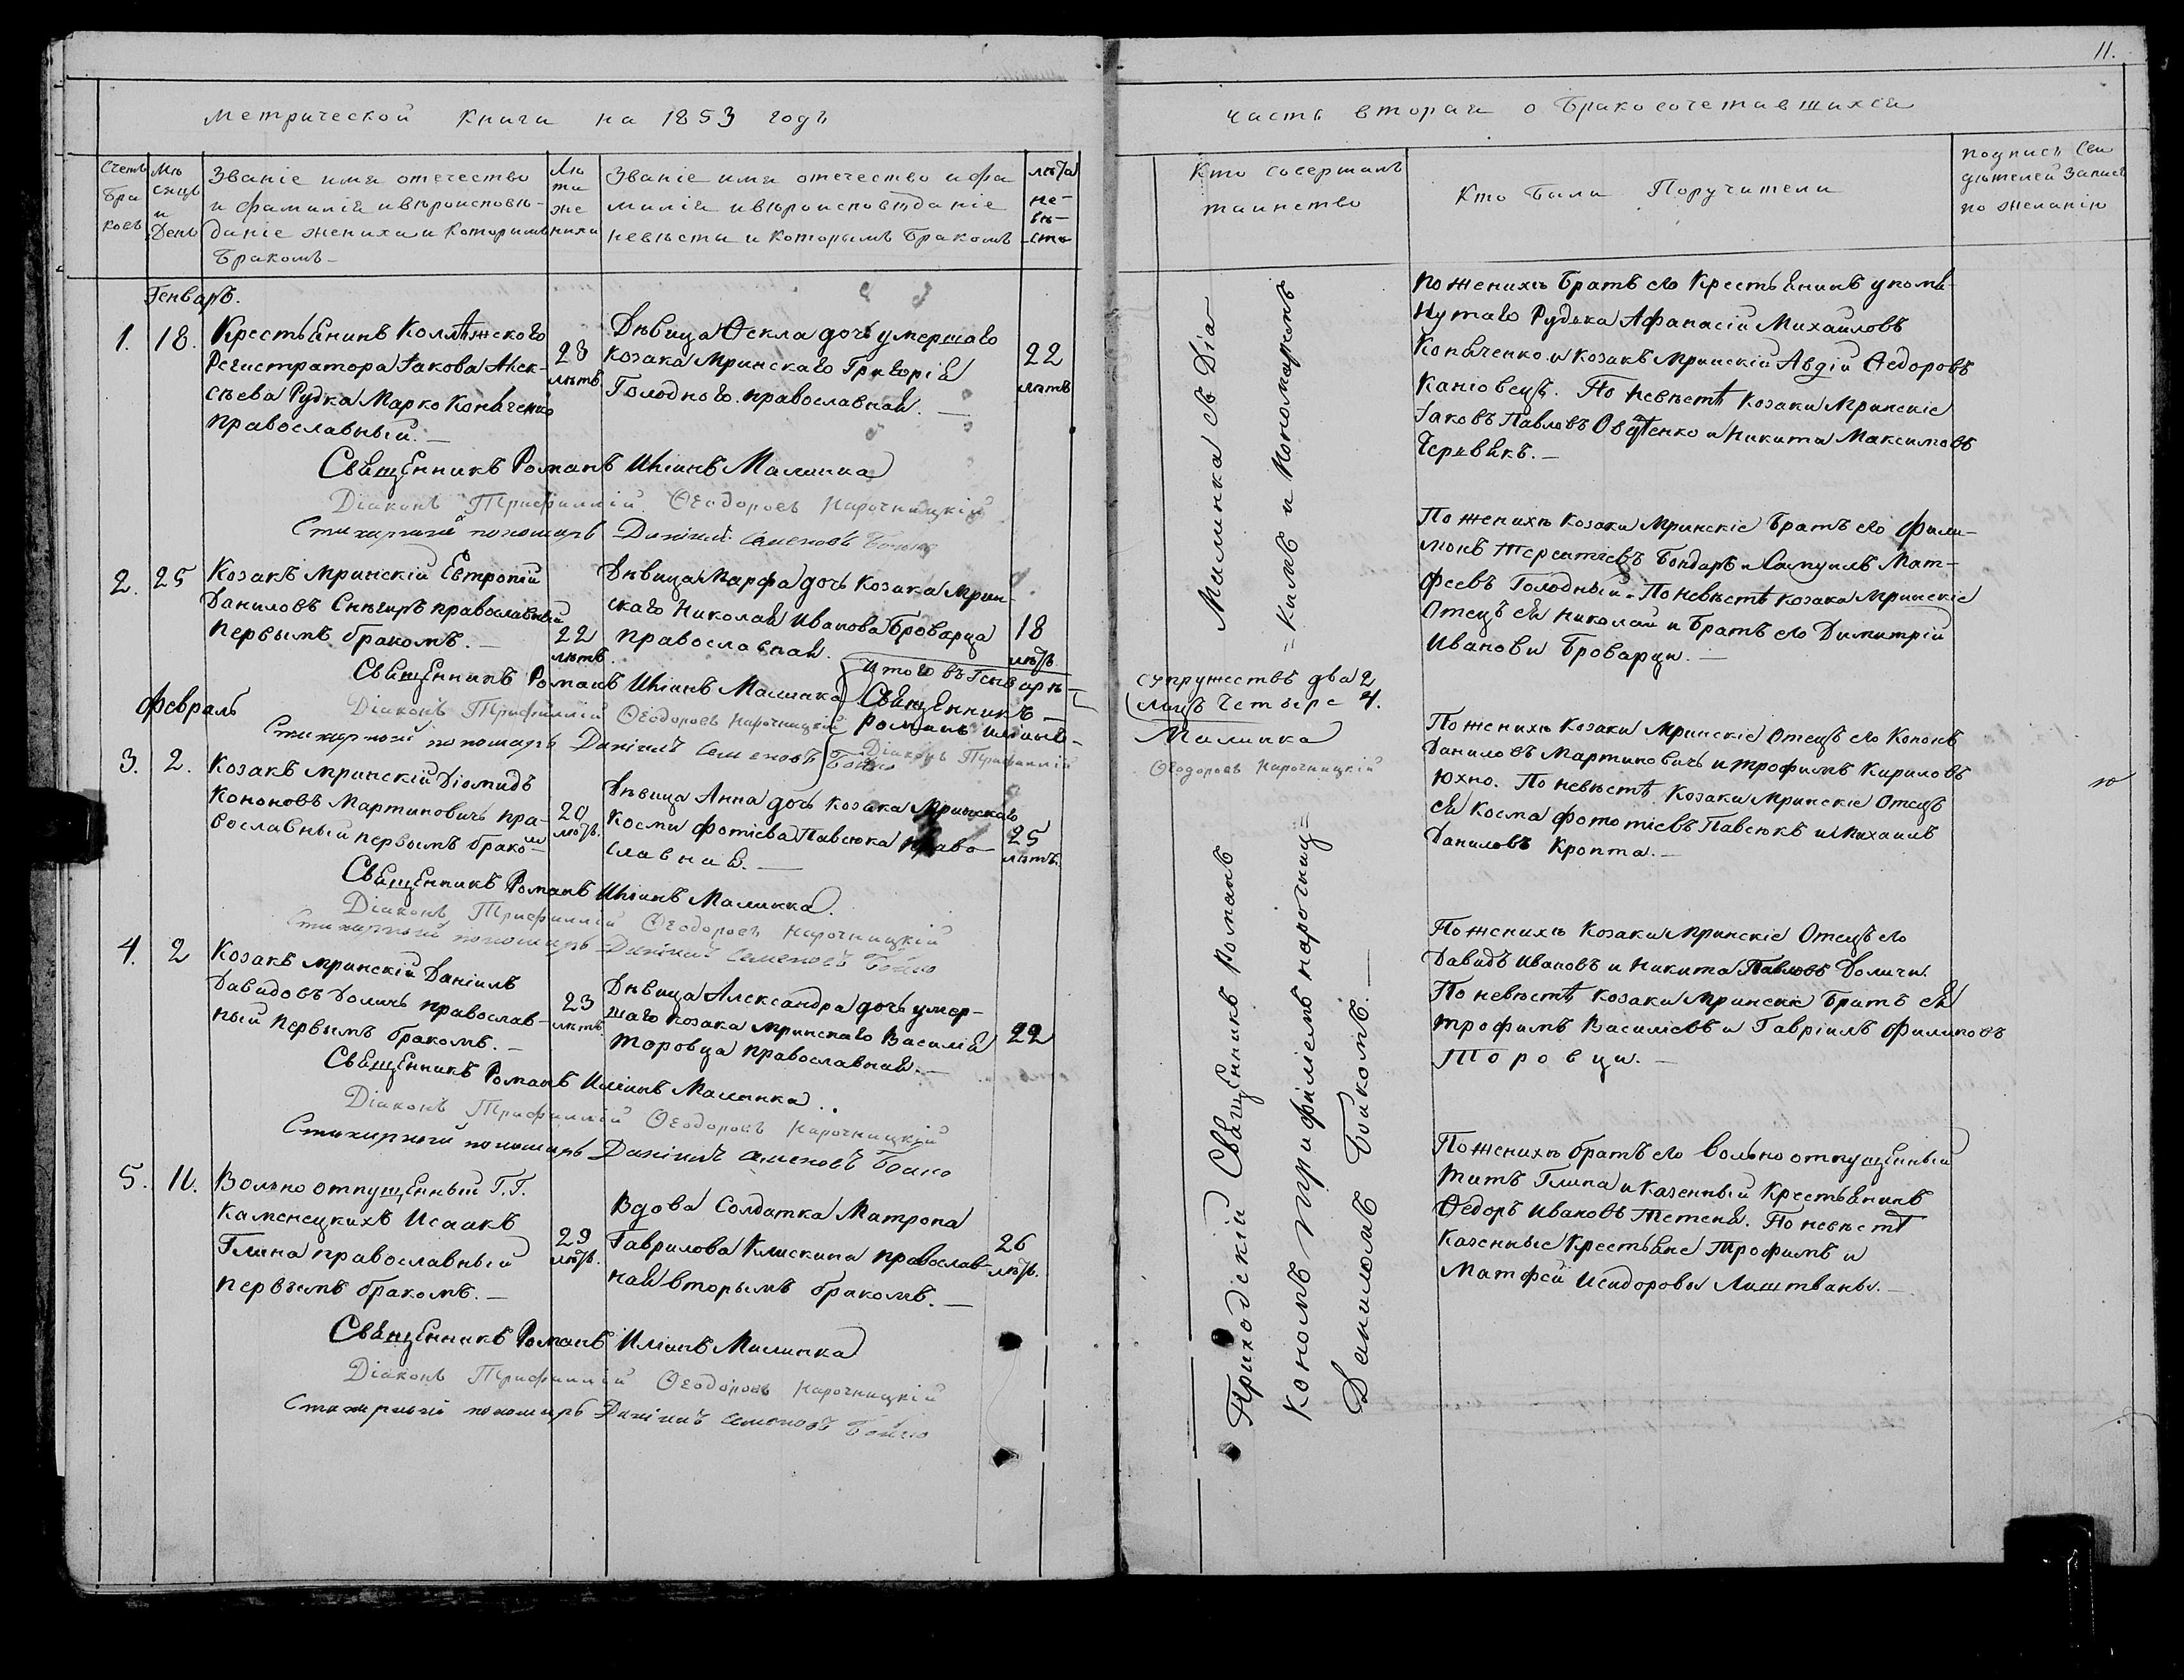 11.
Метрической Книги на 1853 годъ
часть вторая о бракосочетавшихся
Счетъ браковъ
Мѣсяцъ и День
Званіе имя отечество
и фамилія ивѣроисповѣ-
даніе жениха и которымъ
бракомъ-
Лѣта жениха
Званіе имя отечество ифа
милія ивѣроисповѣданіе
невѣсты и которымъ бракомъ
лѣта не-вѣ-сты
Кто совершалъ
таинство
Кто были Поручители
подпись Сви
дѣтелей Запис
по желанію
Генварь.
1. 18.
Крестьянинъ Коллѣжского
Регистратора Іакова Алек-
сѣева Рудка Марко Копаченко
православный.-
28
лѣтъ
Дѣвица Ѳекла дочь умершаго
Козака Мринскаго Григорія
Голодного. православная.-
22
лѣтъ
Священникъ Романъ Иліинъ Малинка
Діаконъ Трифиллій Ѳеодоровъ Нарочницкій
Стихарный пономарь Даніилъ Семеновъ Бойко
2. 25
Козакъ Мринскій Евтропій
Даниловъ Снѣгиръ православный
первымъ бракомъ.-
22
лѣтъ
Дѣвица Марфа дочь Козака Мрин
скаго Николая Иванова Броварца
православная.
18
лѣтъ
Священникъ Романъ Иліинъ Малинка
Діаконъ Трифиллій Ѳеодоровъ Нарочницкій
Стихарный пономарь Даніилъ Семеновъ Бойко
Итого въ Генварѣ-
Священникъ-
Романъ Иліинъ-
Діаконъ Трифиллій
Февраль
3. 2.
Козакъ Мринскій Діомидъ
Кононовъ Мартиновичъ пра-
вославный первымъ брако-м
20
лѣтъ.
Дѣвица Анна дочь Козака Мринскаго
Косми Фотіева Павсюка право-
славная.-
25
лѣтъ.
Священникъ Романъ Иліинъ Малинка.
Діаконъ Трифиллій Ѳеодоровъ Нарочницкій
Стихарный пономарь Даніилъ Семеновъ Бойко
4. 2
Козакъ Мринскій Даніилъ
Давидовъ Доличъ православ-
ный первымъ бракомъ.-
23
лѣтъ
Дѣвица Александра дочь умер-
шаго козака Мринскаго Василія
Торовца православная.-
22
Священникъ Романъ Иліинъ Малинка.
Діаконъ Трифиллій Ѳеодоровъ Нарочницкій
Стихарный пономарь Даніилъ Семеновъ Бойко
5. 11.
Вольно отпущенный Г.Г.
Каменецкихъ Исаакъ
Глина православный
первымъ бракомъ.-
29
лѣтъ.
Вдова Солдатка Матрона
Гаврилова Клискина православ-
ная вторымъ бракомъ.-
26
лѣтъ.
Священникъ Романъ Иліинъ Малинка
Діаконъ Трифиллій Ѳеодоровъ Нарочницкій
Стихарный пономарь Даніилъ Семеновъ Бойко
Приходскій Священникъ Романъ Малинка съ Діа
кономъ Трифиліемъ Нарочниц= =кимъ и Пономаремъ
Даниломъ Бойкомъ.-
супружествъ два 2
лицъ Четыре 4.
Малинка
Ѳеодоровъ Нарочницкій
По женихѣ Братъ его Крестьянинъ упомя
нутаго Рудька Афанасій Михаиловъ
Копаченко и козакъ Мринскій Авдій Ѳедоровъ
Каніовецъ. По невѣстѣ Козаки Мринскіе
Іаковъ Павловъ Овдѣенко и Никита Максимовъ
Червякъ.-
По женихѣ Козаки Мринскіе Братъ его Фили-
монъ Терентіевъ Бондаръ и Самуилъ Мат-
фѣевъ Голодный. По невѣстѣ козака Мринскіе
Отецъ ея Николай и Братъ его Димитрій
Ивановы Броварци.-
По женихѣ Козаки Мринскіе Отецъ его Кононъ
Даниловъ Мартиновичъ и Трофимъ Кириловъ
Юхно. По невѣстѣ Козаки Мринскіе Отецъ
ея Косма Фототіевъ Павсюкъ и Михаилъ
Даниловъ Кропта.-
По женихѣ Козаки Мринскіе Отецъ его
Давидъ Ивановъ и Никита Павловъ Доличи.
По невѣстѣ Козаки Мринскіе Братъ ея
Трофимъ Василіевъ и Гавріилъ Филиповъ
Торовци.-
По женихѣ братъ его Вольно отпущенный
Титъ Глина и Казенный Крестьянинъ
Ѳедоръ Ивановъ Тетеня. По невѣстѣ
Казенные Крестьяне Трофимъ и
Матфей Исидоровы Лиштваны.-